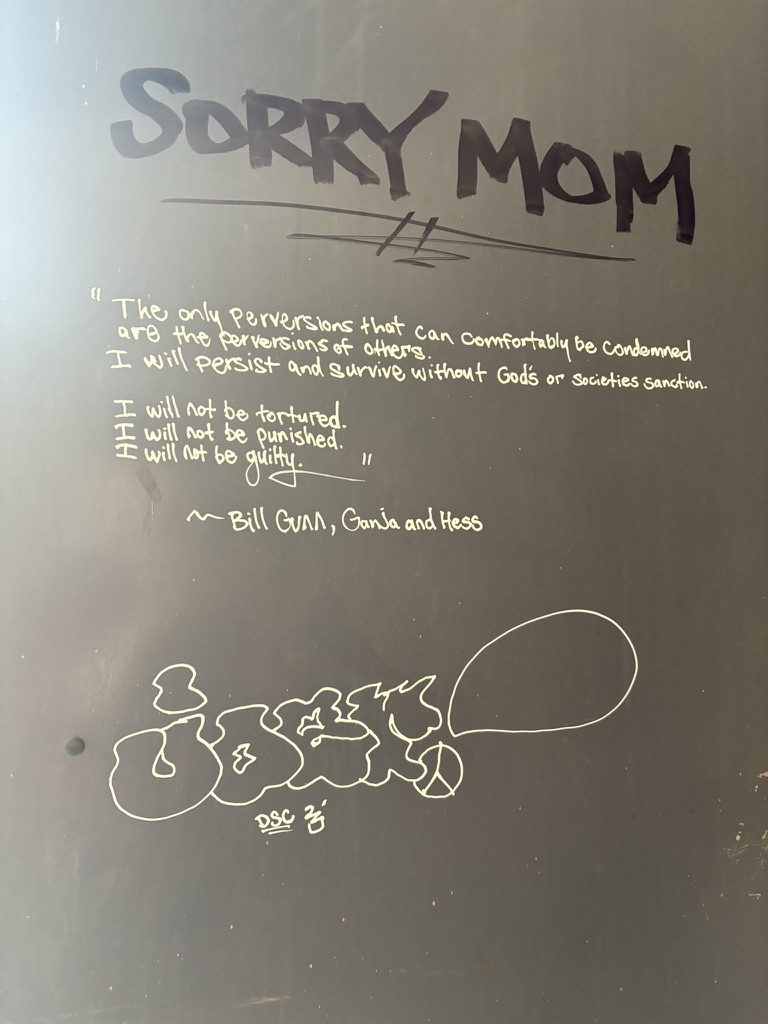 SORRY MOM
"The only perversions that can comfortably be condemned
are the perversions of others.
I will persist and survive without God's or societies sanction.
I will not be tortured.
I will not be punished.
I will not be guilty."
~ Bill Gunn, Ganja and Hess
DSC